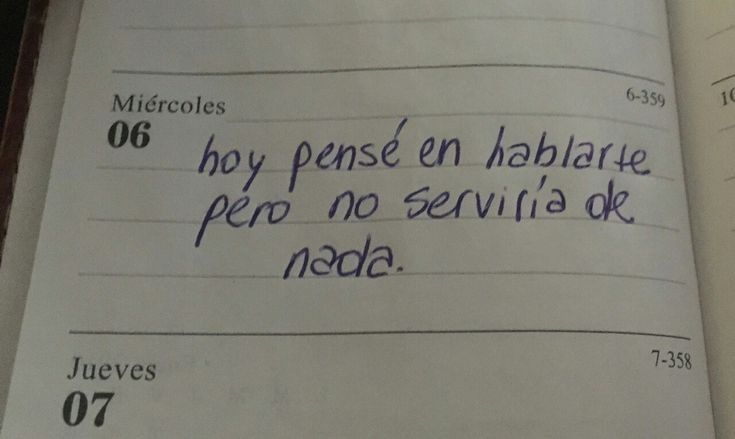 Miércoles 6-359
06
hoy pensé en hablarte
pero no serviría de
nada.
7-358
Jueves
07